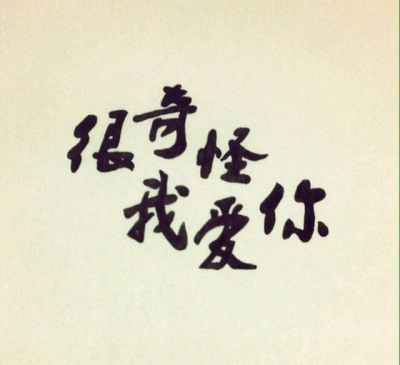 很奇怪
我爱你